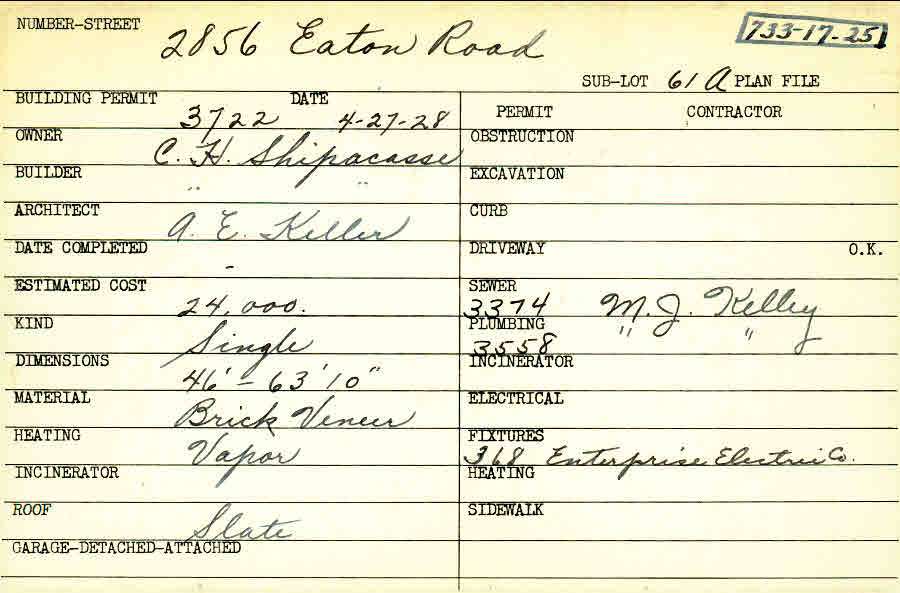 NUMBER-STREET 2856 Eaton Road 733-17-251
SUB-LOT 61 A PLAN FILE
BUILDING PERMIT 3722 DATE 4-27-28
PERMIT CONTRACTOR
OWNER C. H. Shipacasse
OBSTRUCTION
BUILDER " "
EXCAVATION
ARCHITECT A. E. Keller
CURB
DATE COMPLETED -
DRIVEWAY O.K.
ESTIMATED COST 24,000.
SEWER 3374 M. J. Kelley
KIND Single
PLUMBING 3558 " "
DIMENSIONS 46' - 63'10"
INCINERATOR
MATERIAL Brick Veneer
ELECTRICAL
HEATING Vapor
FIXTURES 368 Enterprise Electric Co.
INCINERATOR
HEATING
ROOF Slate
SIDEWALK
GARAGE-DETACHED-ATTACHED